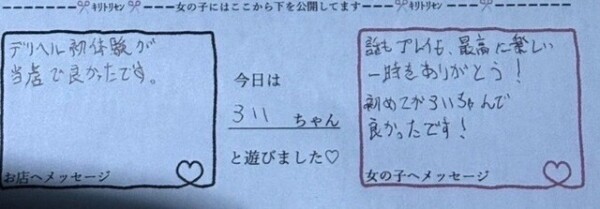 キリトリセン 女の子にはここから下を公開してます キリトリセン
デリヘル初体験が
当店で良かったです。
お店へメッセージ
今日は
るい ちゃん
と遊びました♡
プレイも、最高に楽しい
一時をありがとう!
初めてがるいちゃんで
良かったです!
女の子へメッセージ